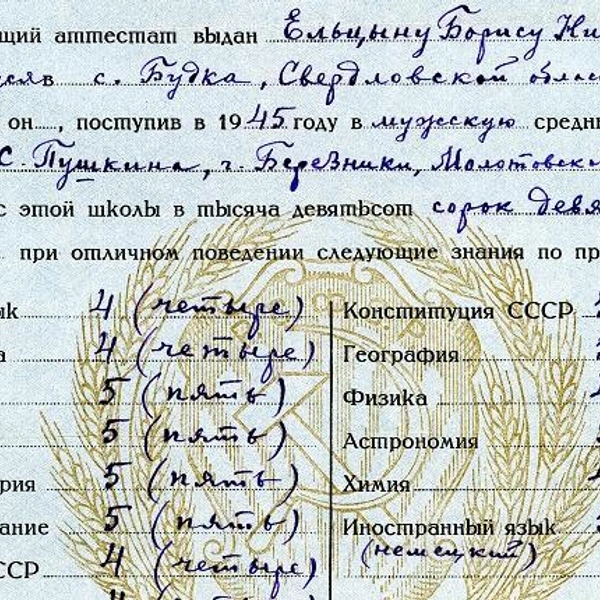 щий аттестат выдан Ельцыну Борису Ни
с. Будка, Свердловской облас
он, поступив в 1945 году в мужскую средн
С. Пушкина, г. Березники, Молотовск
с этой школы в тысяча девятьсот сорок девя
при отличном поведении следующие знания по пр
ык 4 (четыре) Конституция СССР
а 4 (четыре) География
5 (пять) Физика
5 (пять) Астрономия
рия 5 (пять) Химия
ание 5 (пять) Иностранный язык
(немецкий)
ССР 4 (четыре)